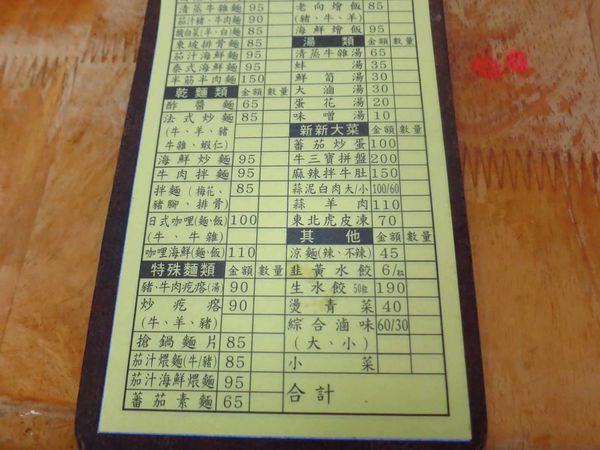 清蒸牛雜麵 95
茄汁豬、牛肉麵 90
酸白菜(羊、白)麵 85
東坡排骨麵 85
茄汁海鮮麵 95
泰式海鮮麵 95
半筋半肉麵 150
乾麵類 金額 數量
酢醬麵 65
法式炒麵 85
(牛、羊、豬
牛雜、蝦仁)
海鮮炒麵 95
牛肉拌麵 95
拌麵(梅花、 85
豬腳、排骨)
日式咖哩(麵、飯) 100
(牛、牛雜)
咖哩海鮮(麵、飯) 110
特殊麵類 金額 數量
豬、牛肉疙瘩(湯) 90
炒疙瘩 90
(牛、羊、豬)
搶鍋麵片 85
茄汁煨麵(牛/豬) 85
茄汁海鮮煨麵 95
蕃茄素麵 65
老向燴飯 85
(豬、牛、羊)
海鮮燴飯 95
湯類 金額 數量
清蒸牛雜湯 65
蚌湯 35
鮮筍湯 30
大滷湯 30
蛋花湯 20
味噌湯 10
新新大菜 金額 數量
蕃茄炒蛋 100
牛三寶拼盤 200
麻辣拌牛肚 150
蒜泥白肉大/小 100/60
蒜羊肉 110
東北虎皮凍 70
其他 金額 數量
涼麵(辣、不辣) 45
韭黃水餃 6/粒
生水餃 50粒 190
燙青菜 40
綜合滷味 60/30
(大、小)
小菜
合計